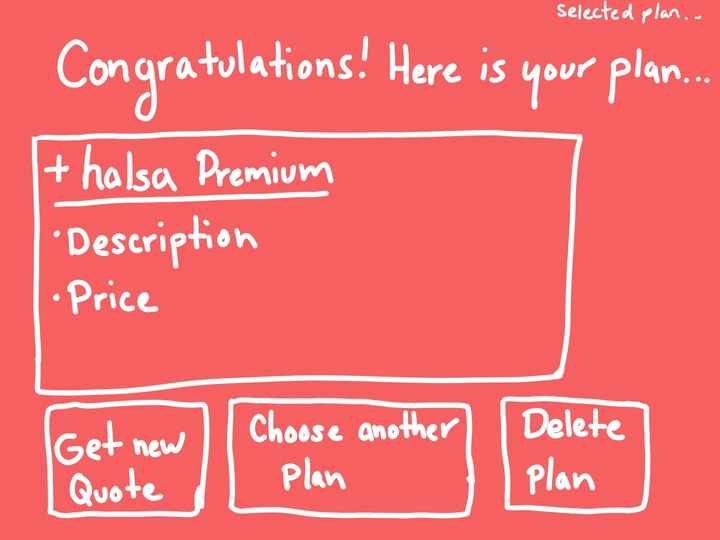 selected plan...
Congratulations! Here is your plan...
+ halsa Premium
• Description
• Price
Get new
Quote
Choose another
Plan
Delete
Plan